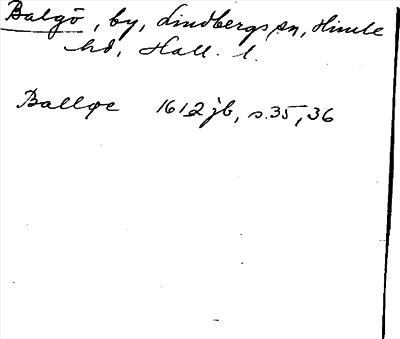 Balgö, by, Lindbergs sn, Himle
hd, Hall. l.
Balløe 1612 jb, s. 35, 36